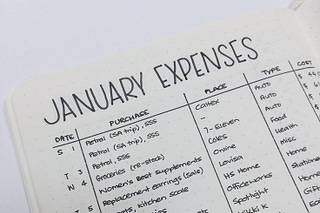 JANUARY EXPENSES
DATE PURCHASE PLACE TYPE COST
S 1 Petrol (SA trip), 555 Caltex Auto $
Petrol (SA trip), 555 – Auto
Petrol, 555 7-Eleven Auto
T 3 Groceries (re-stock) Coles Food
W 4 Women's best supplements Online Health
Replacement earrings (sale) Lovisa Misc
T 5 kitchen scale HS Home Home
Officeworks Stationery
Spotlight